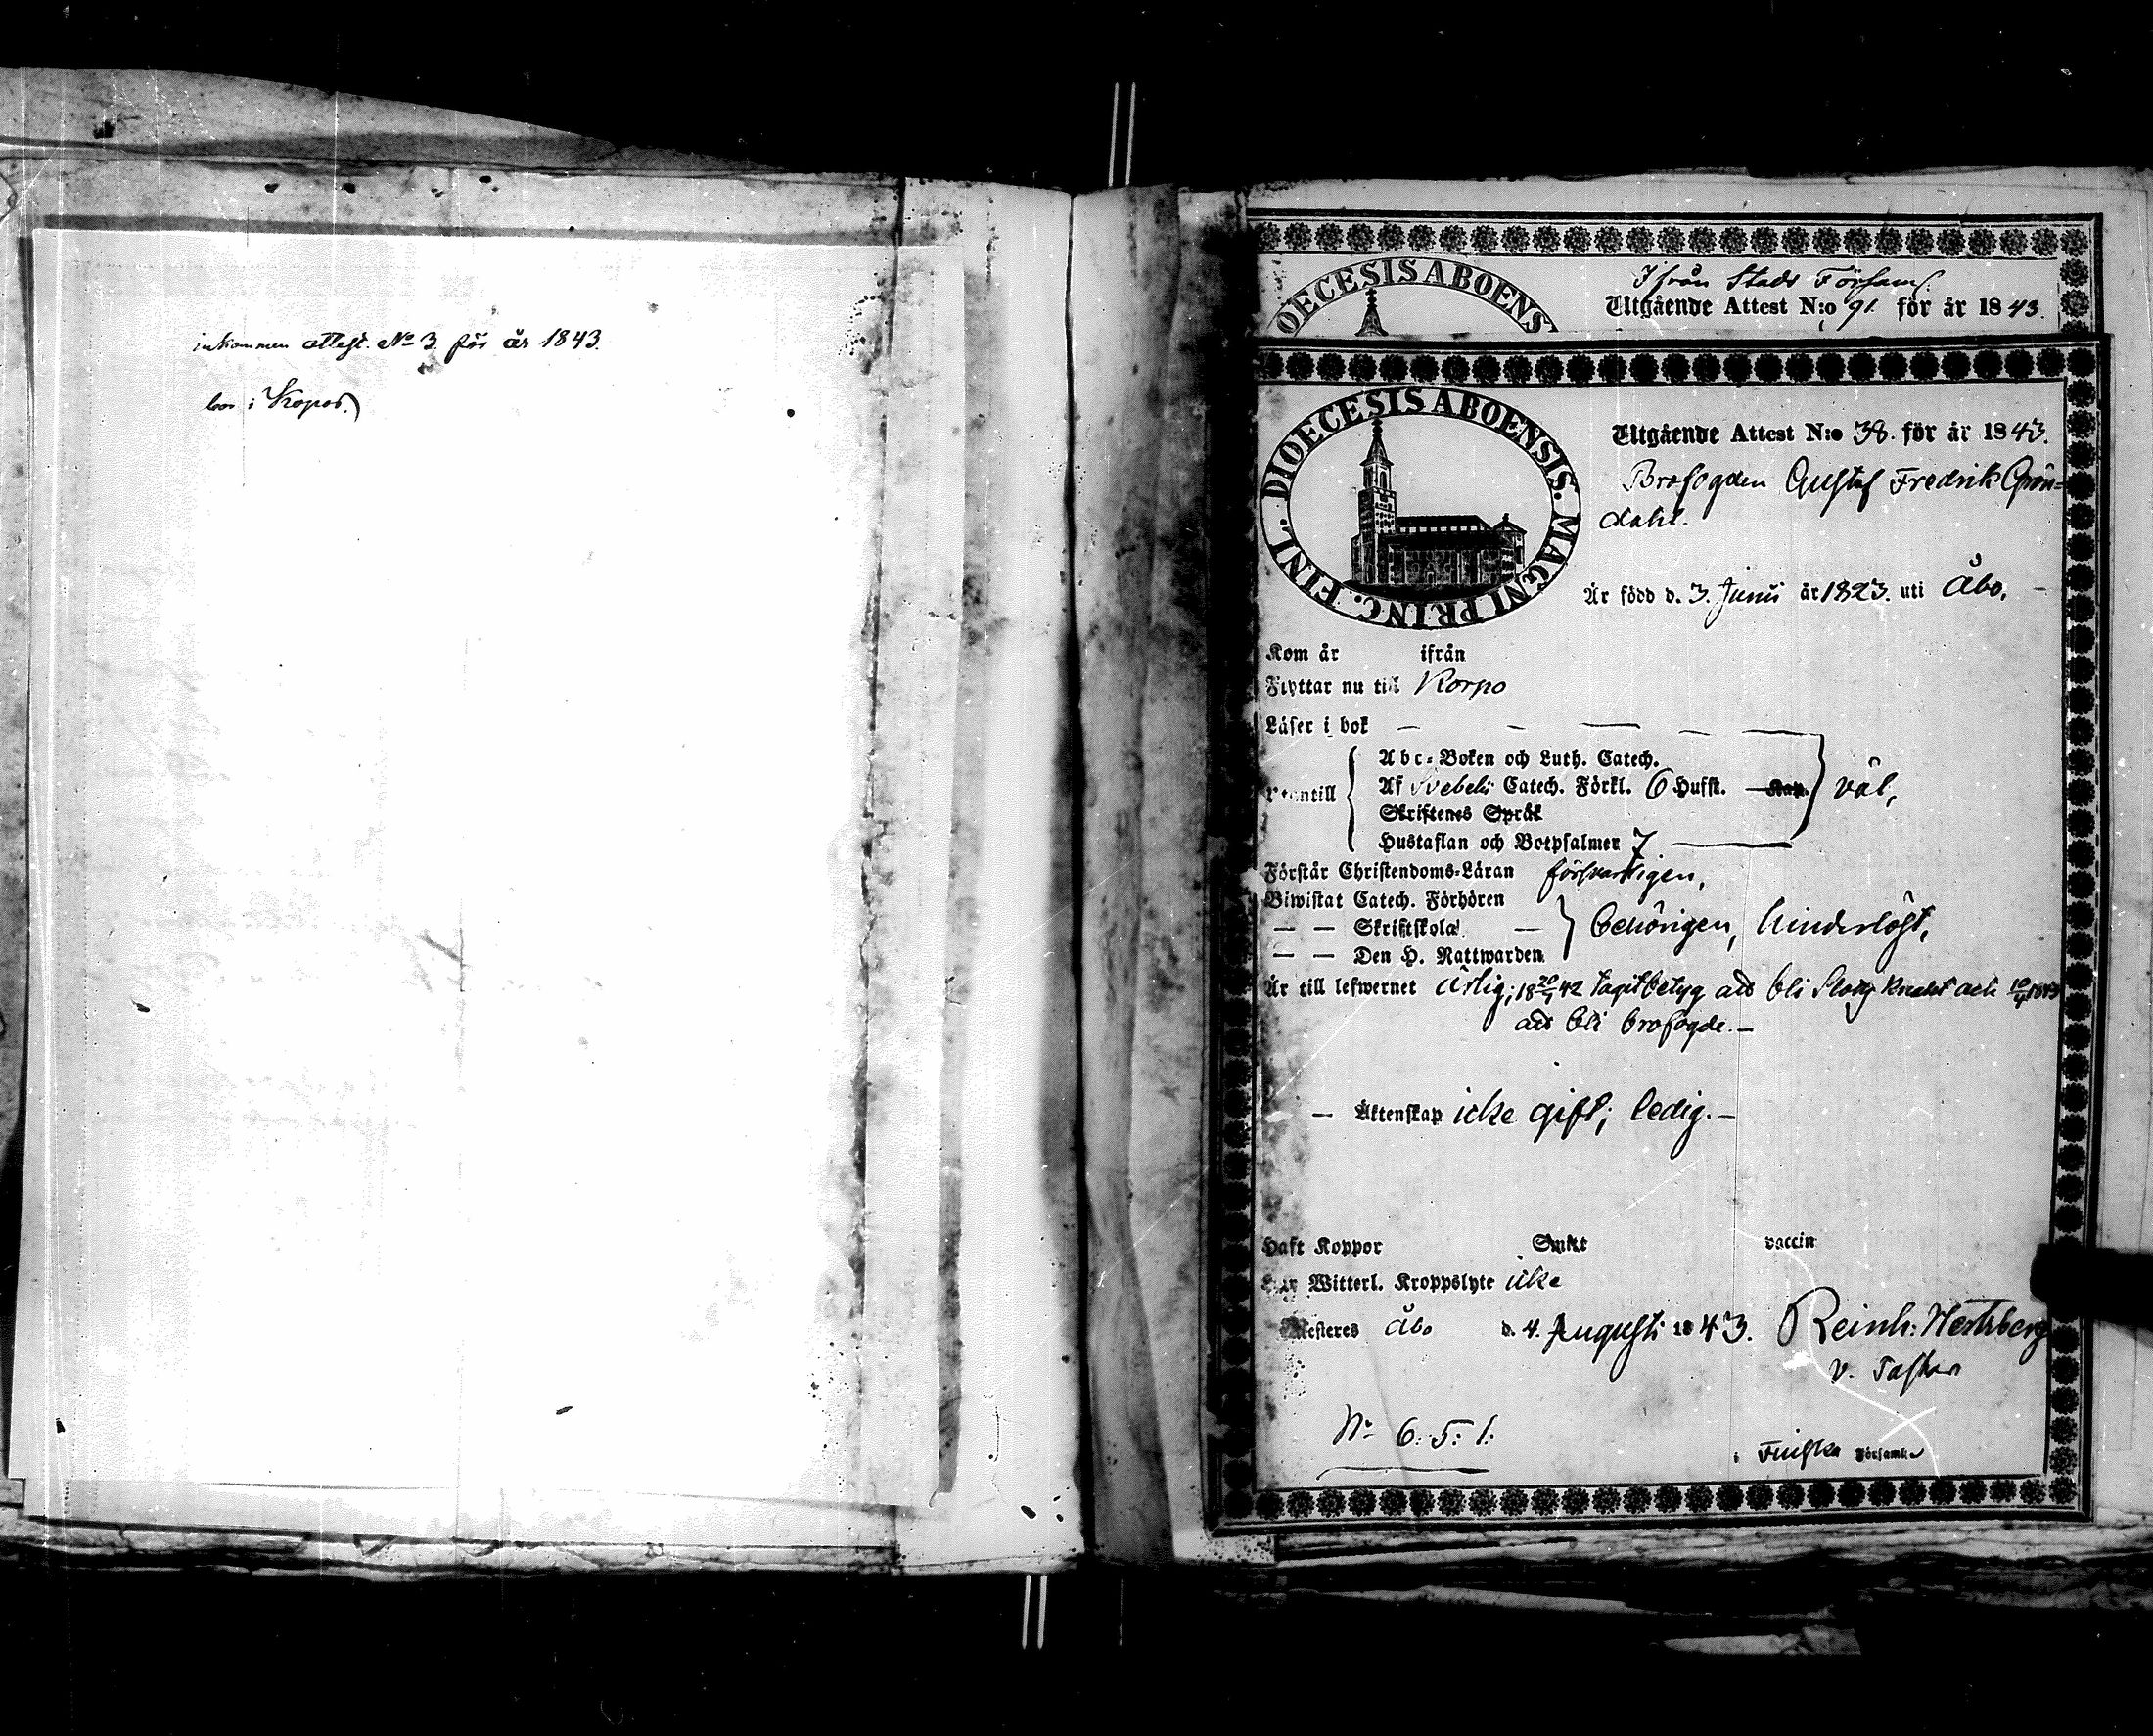 inkommen attest. No 3. för år 1843.
bor i
DIOECESIS ABOENS
Ifrån Stads Församl.
Utgående Attest N:o 91. för år 1843.
DIOECESIS ABOENSIS. MAGNI PRINC. FINL.
Utgående Attest N:o 38. för år 1843.
Brofogden Gustaf Fredrik Grön=
dahl.
Är född d. 3. Junii år 1823. uti Åbo, —
Kom år ifrån
Flyttar nu till Korpo
Läser i bok — — — — —
Utantill
Abc-Boken och Luth. Catech.
Af Svebelii Catech. Förkl. 6 Hufst. Kap. väl,
Skriftenes Språk
Hustaflan och Botpsalmer 7
Förstår Christendoms-Läran försvarligen,
Biwistat Catech. Förhören
— — Skriftskola — behörigen, hinderlöst,
— — Den H. Nattwarden
Är till lefwernet ärlig; 18 42 tagit betyg att bli och
att bli brofogde. —
— Äktenskap icke gift; ledig. —
Haft Koppor Smkt vaccin
Har Witterl. Kroppslyte icke
Attesteres Åbo d. 4. Augusti 1843. Reinh: Hertzberg
v. Pastor
No 6. 5. 1.
i Finska Församl.